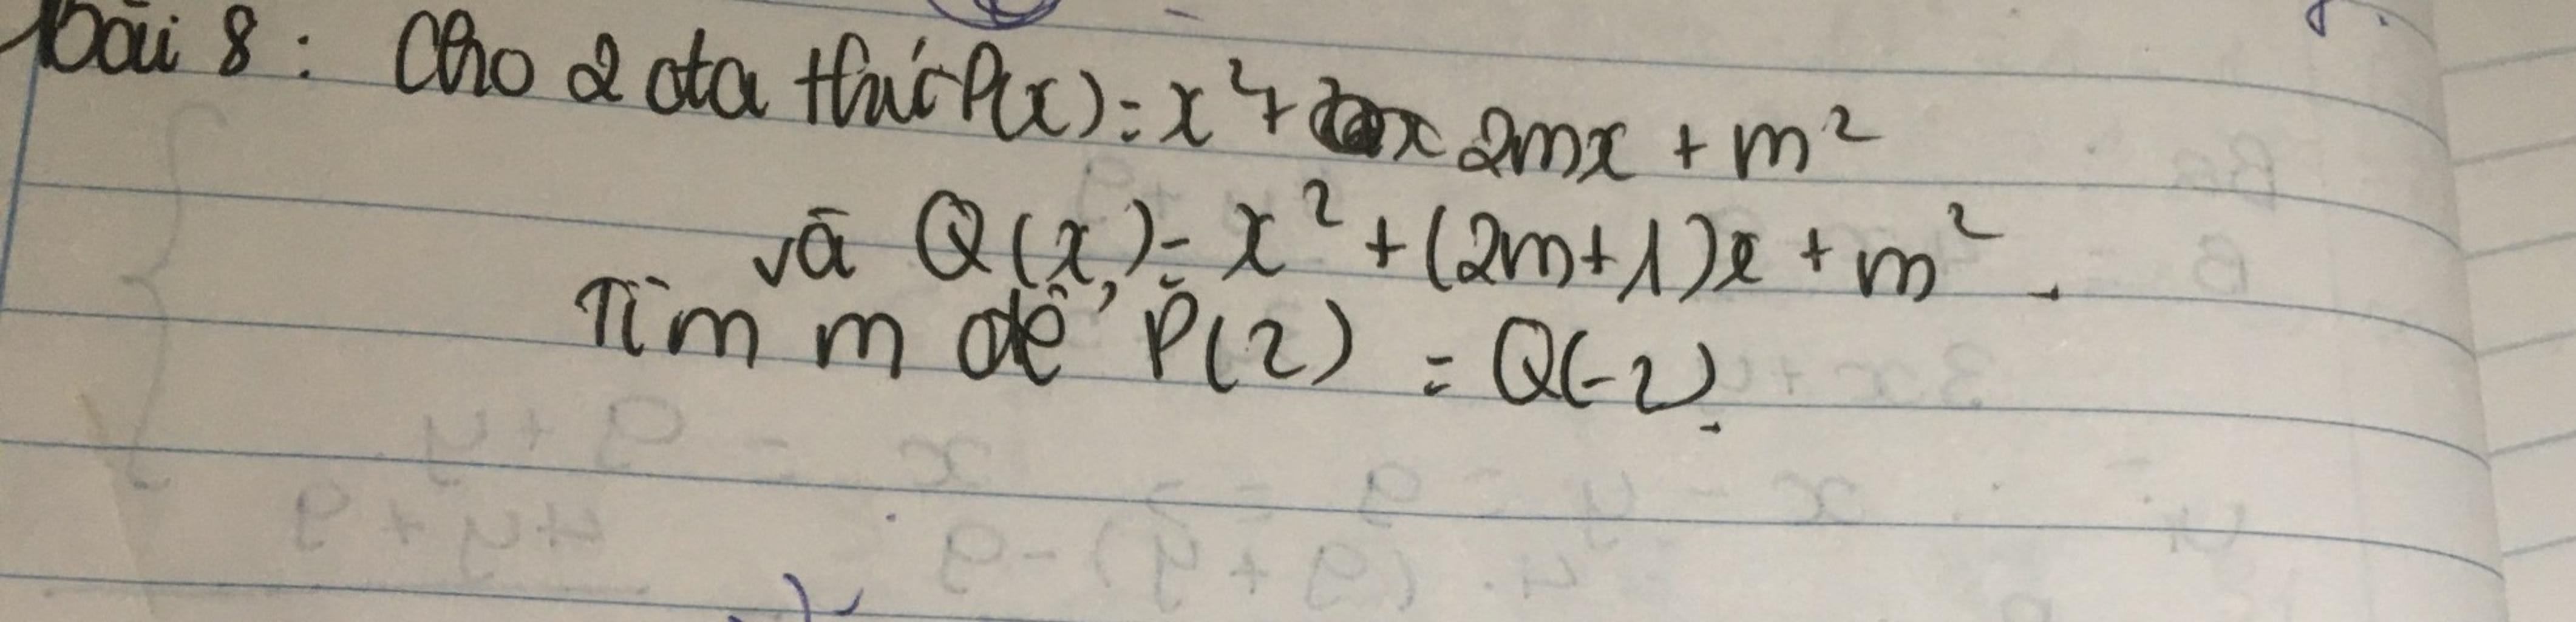 Bài 8 : Cho 2 đa thức P(x) = x² + 2mx + m²
và Q(x) = x² + (2m+1)x + m².
Tìm m để P(2) = Q(-2).